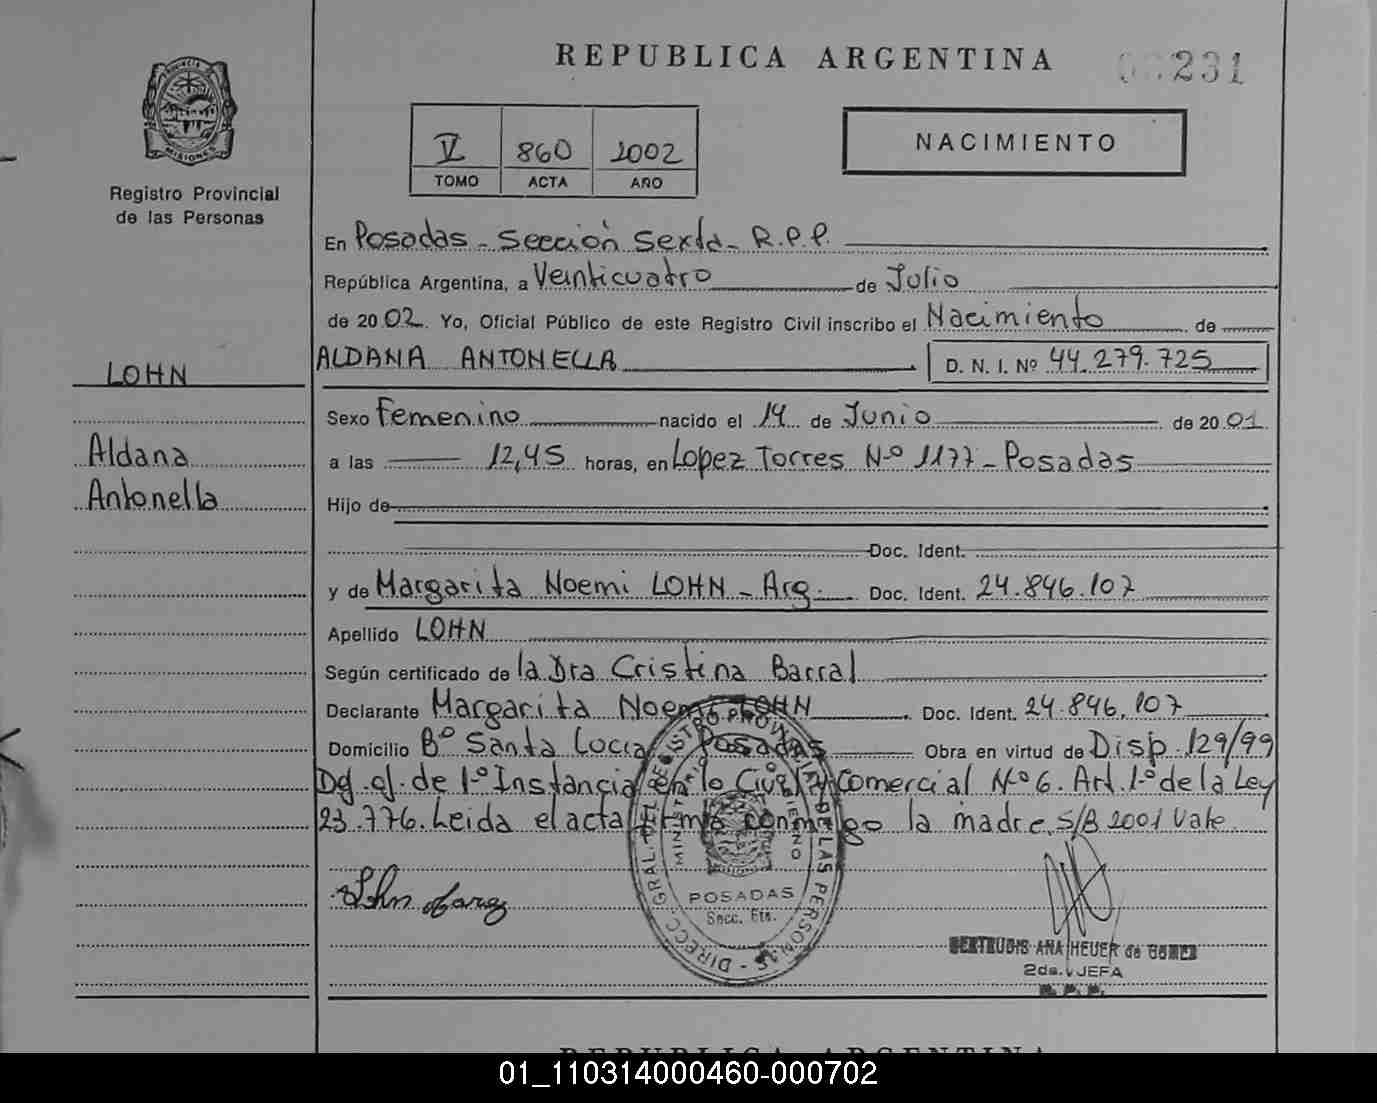 REPUBLICA ARGENTINA
00231
PROVINCIA DE
MISIONES
Registro Provincial
de las Personas
V 860 2002
TOMO ACTA AÑO
NACIMIENTO
En Posadas - Sección Sexta - R.P.P.
República Argentina, a Veinticuatro de Julio
de 2002. Yo, Oficial Público de este Registro Civil inscribo el Nacimiento de
ALDANA ANTONELLA D. N. I. Nº 44.279.725
LOHN
Aldana
Antonella
Sexo Femenino nacido el 14 de Junio de 2001
a las 12,45 horas, en Lopez Torres Nº 1177 - Posadas
Hijo de
Doc. Ident.
y de Margarita Noemi LOHN - Arg. Doc. Ident. 24.846.107
Apellido LOHN
Según certificado de la Dra Cristina Barral
Declarante Margarita Noemi LOHN Doc. Ident. 24.846.107
Domicilio Bº Santa Lucia Posadas Obra en virtud de Disp. 129/99
Dg. of. de 1º Instancia en lo Civil y Comercial Nº 6. Art. 1º de la Ley
23.776. Leida el acta firma conmigo la madre. S/B 2001 Vale.
DIRECC. GRAL. DEL REGISTRO PROVINCIAL DE LAS PERSONAS
MINISTERIO DE GOBIERNO
POSADAS
Secc. 6ta.
GERTRUDIS ANA HEUER de GOMEZ
2da. JEFA
R. P. P.
REPUBLICA ARGENTINA
01_110314000460-000702